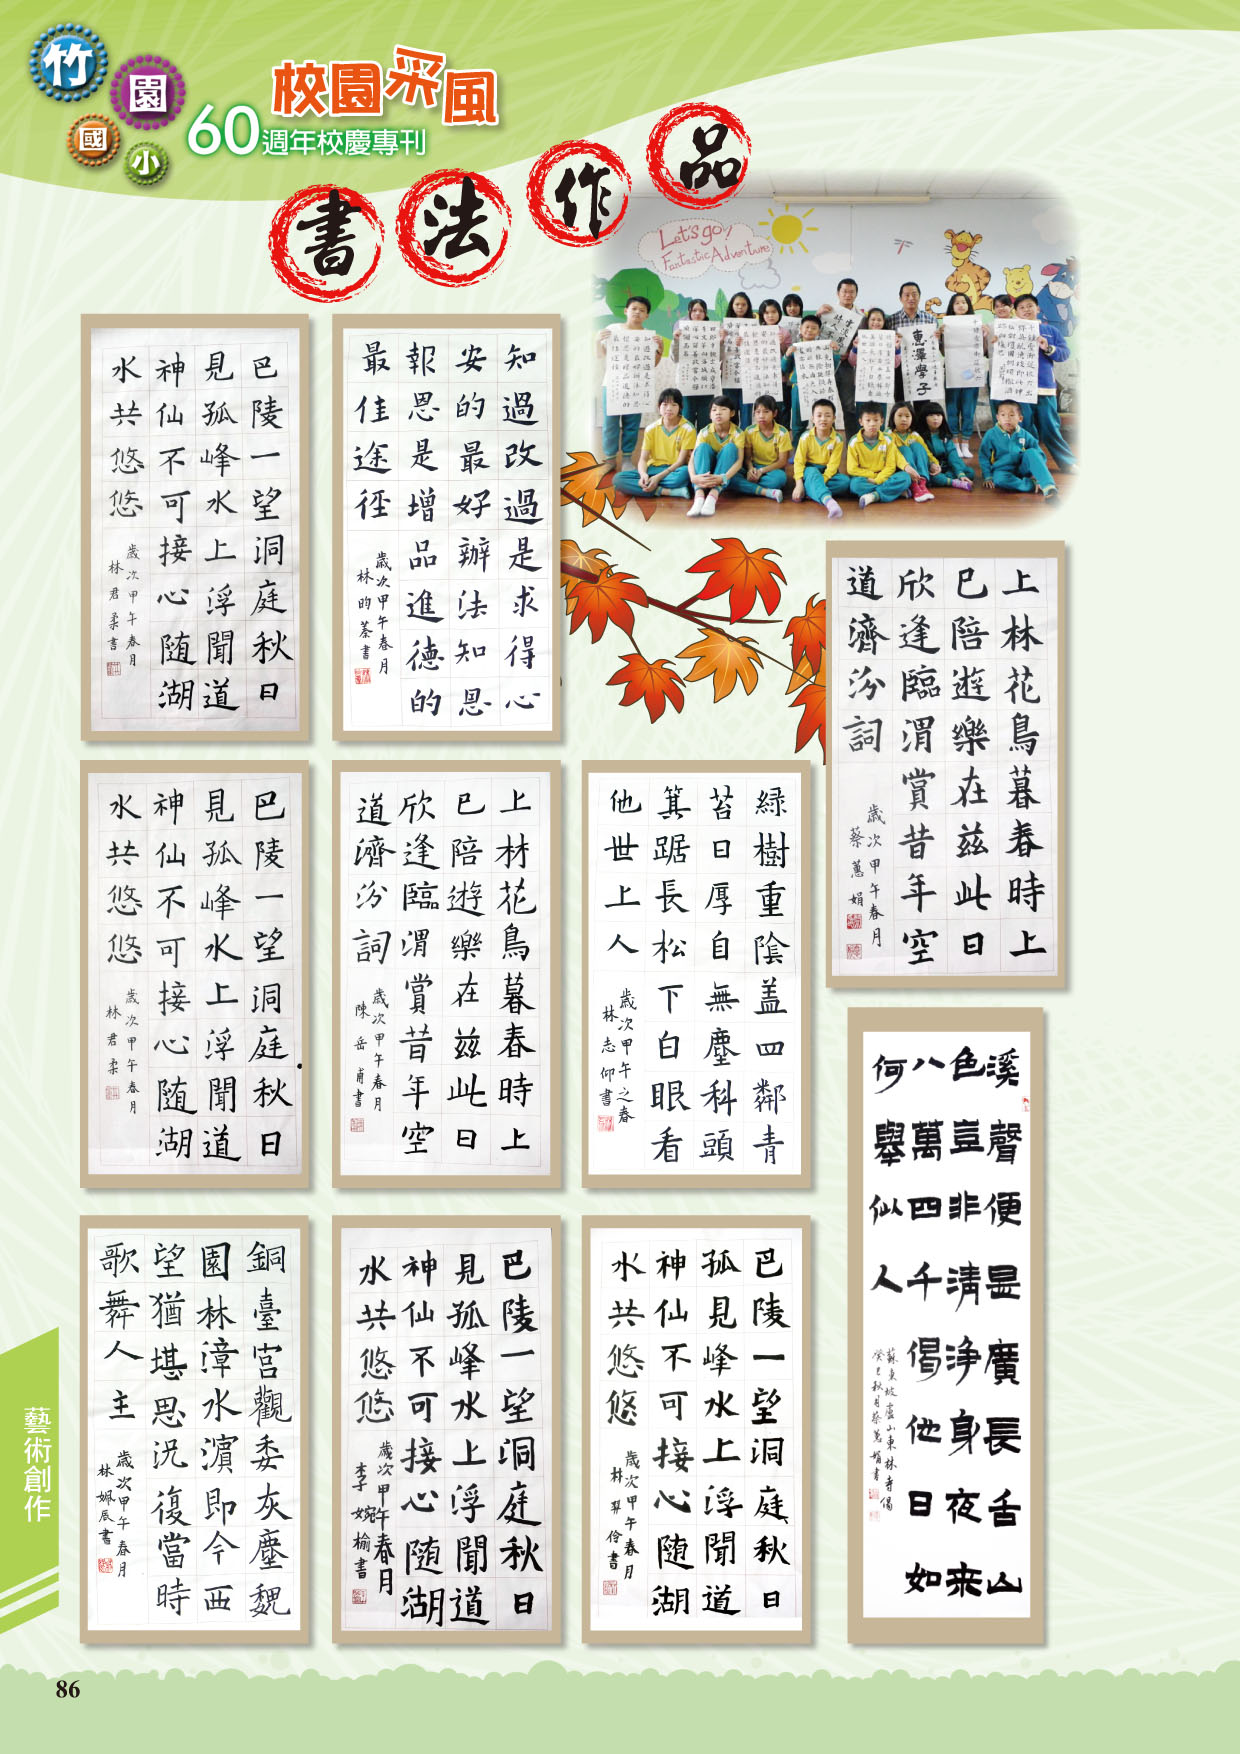 竹園國小
校園采風
60週年校慶專刊
書法作品
Let's go!
Fantastic Adventure
惠澤學子
巴陵一望洞庭秋日
見孤峰水上浮聞道
神仙不可接心随湖
水共悠悠
歲次甲午春月
林君柔書
知過改過是求得心
安的最好辦法知恩
報恩是增品進德的
最佳途徑
歲次甲午春月
林昀蓁書
上林花鳥暮春時上
巳陪遊樂在茲此日
欣逢臨渭賞昔年空
道濟汾詞
歲次甲午春月
蔡蕙娟
巴陵一望洞庭秋日
見孤峰水上浮聞道
神仙不可接心随湖
水共悠悠
歲次甲午春月
林君柔
上林花鳥暮春時上
巳陪遊樂在茲此日
欣逢臨渭賞昔年空
道濟汾詞
歲次甲午春月
陳岳甫書
綠樹重陰盖四鄰青
苔日厚自無塵科頭
箕踞長松下白眼看
他世上人
歲次甲午之春
林志仰書
溪聲便是廣長舌山
色豈非清淨身夜來
八萬四千偈他日如
何舉似人
蘇東坡廬山東林寺偈
癸巳秋月蔡蕙娟書
銅臺宮觀委灰塵魏
園林漳水濱即今西
望猶堪思況復當時
歌舞人主
歲次甲午春月
林姵辰書
巴陵一望洞庭秋日
見孤峰水上浮聞道
神仙不可接心随湖
水共悠悠
歲次甲午春月
李婉榆書
巴陵一望洞庭秋日
孤見峰水上浮聞道
神仙不可接心随湖
水共悠悠
歲次甲午春月
林羿伶書
藝術創作
86